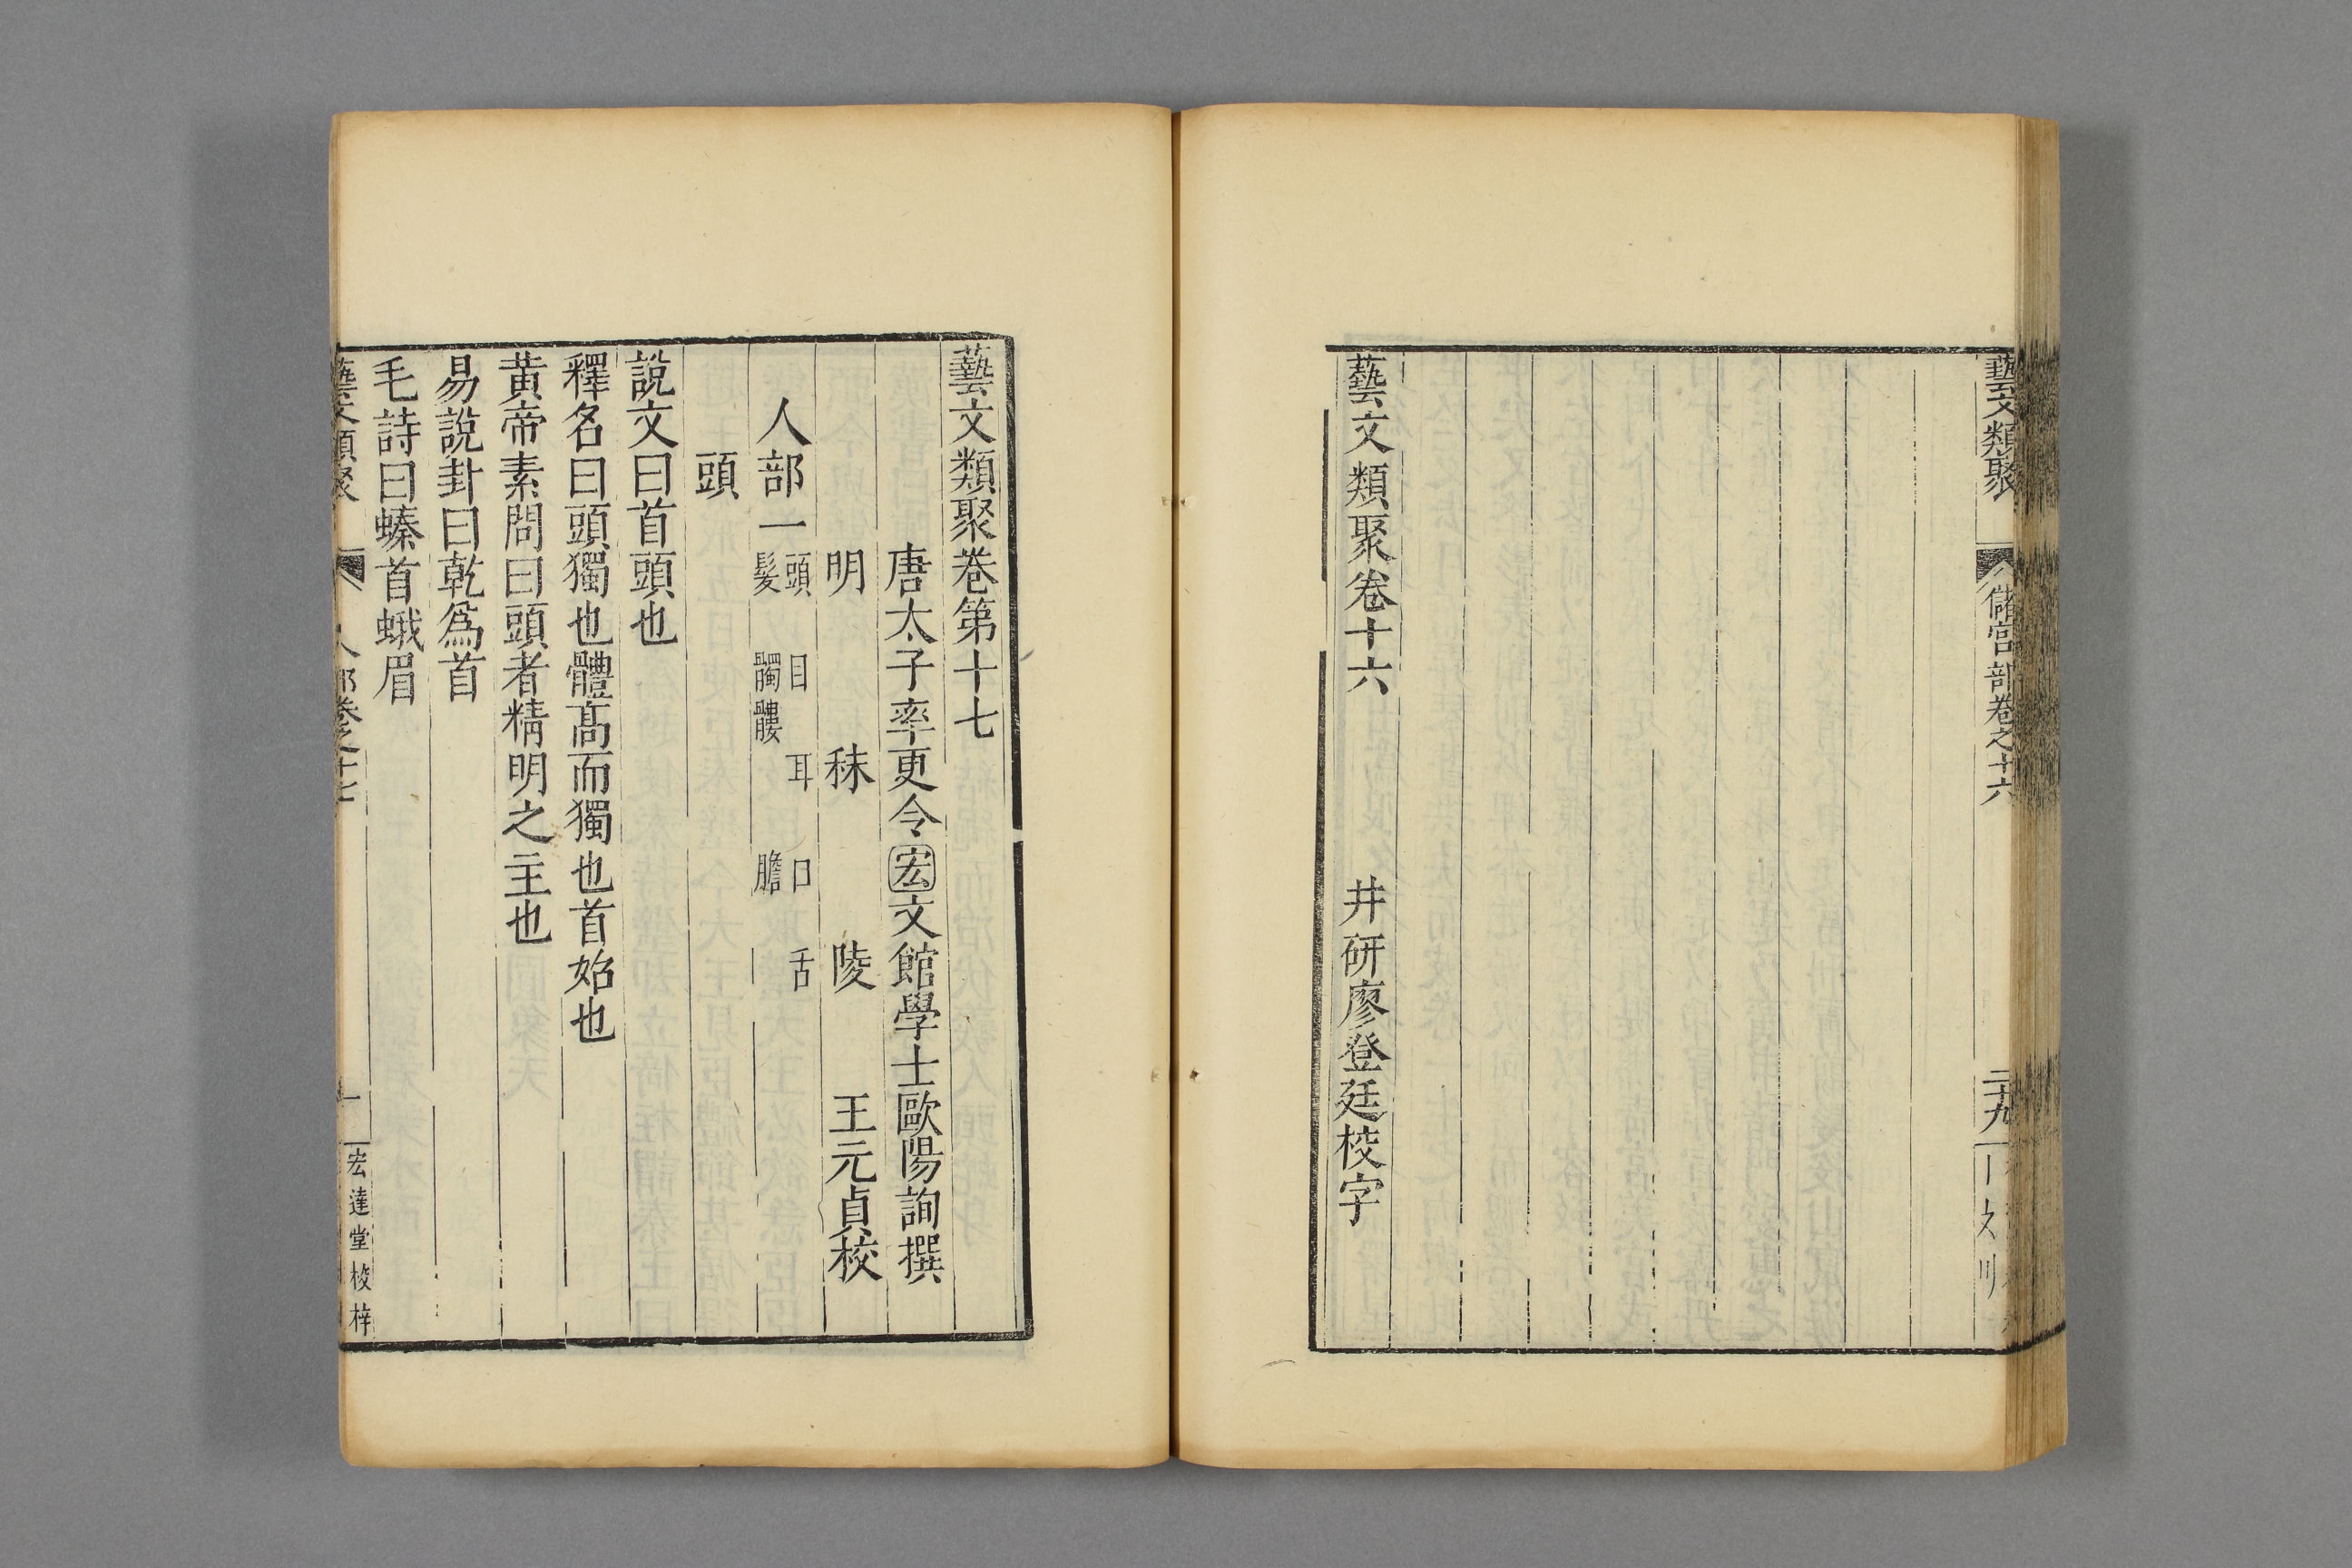 藝文類聚 儲宮部卷之十六 二十九
藝文類聚卷十六 井研廖登廷校字
藝文類聚卷第十七
唐太子率更令宏文館學士歐陽詢撰
明 秣 陵 王元貞校
人部一 頭 目 耳 口 舌
髮 髑髏 膽
頭
說文曰首頭也
釋名曰頭獨也體髙而獨也首始也
黃帝素問曰頭者精明之主也
易說卦曰乾爲首
毛詩曰螓首蛾眉
藝文類聚 人部卷之十七 一 宏達堂校梓